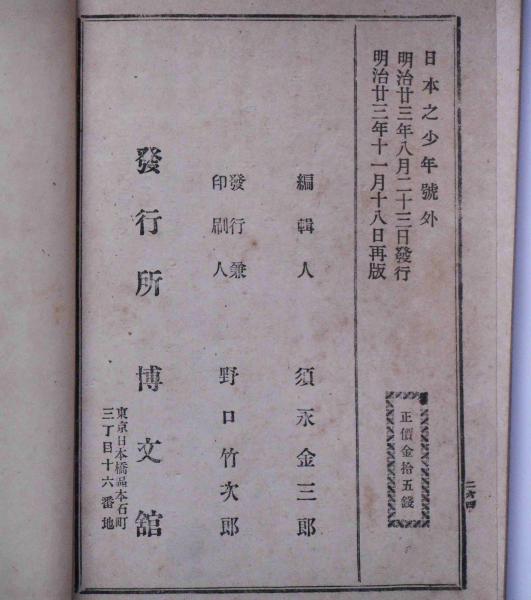 日本之少年號外
明治廿三年八月二十三日發行
明治廿三年十一月十八日再版
正價金拾五錢
編輯人 須永金三郎
發行兼
印刷人 野口竹次郎
發行所 博文舘
東京日本橋區本石町
三丁目十六番地
二六四